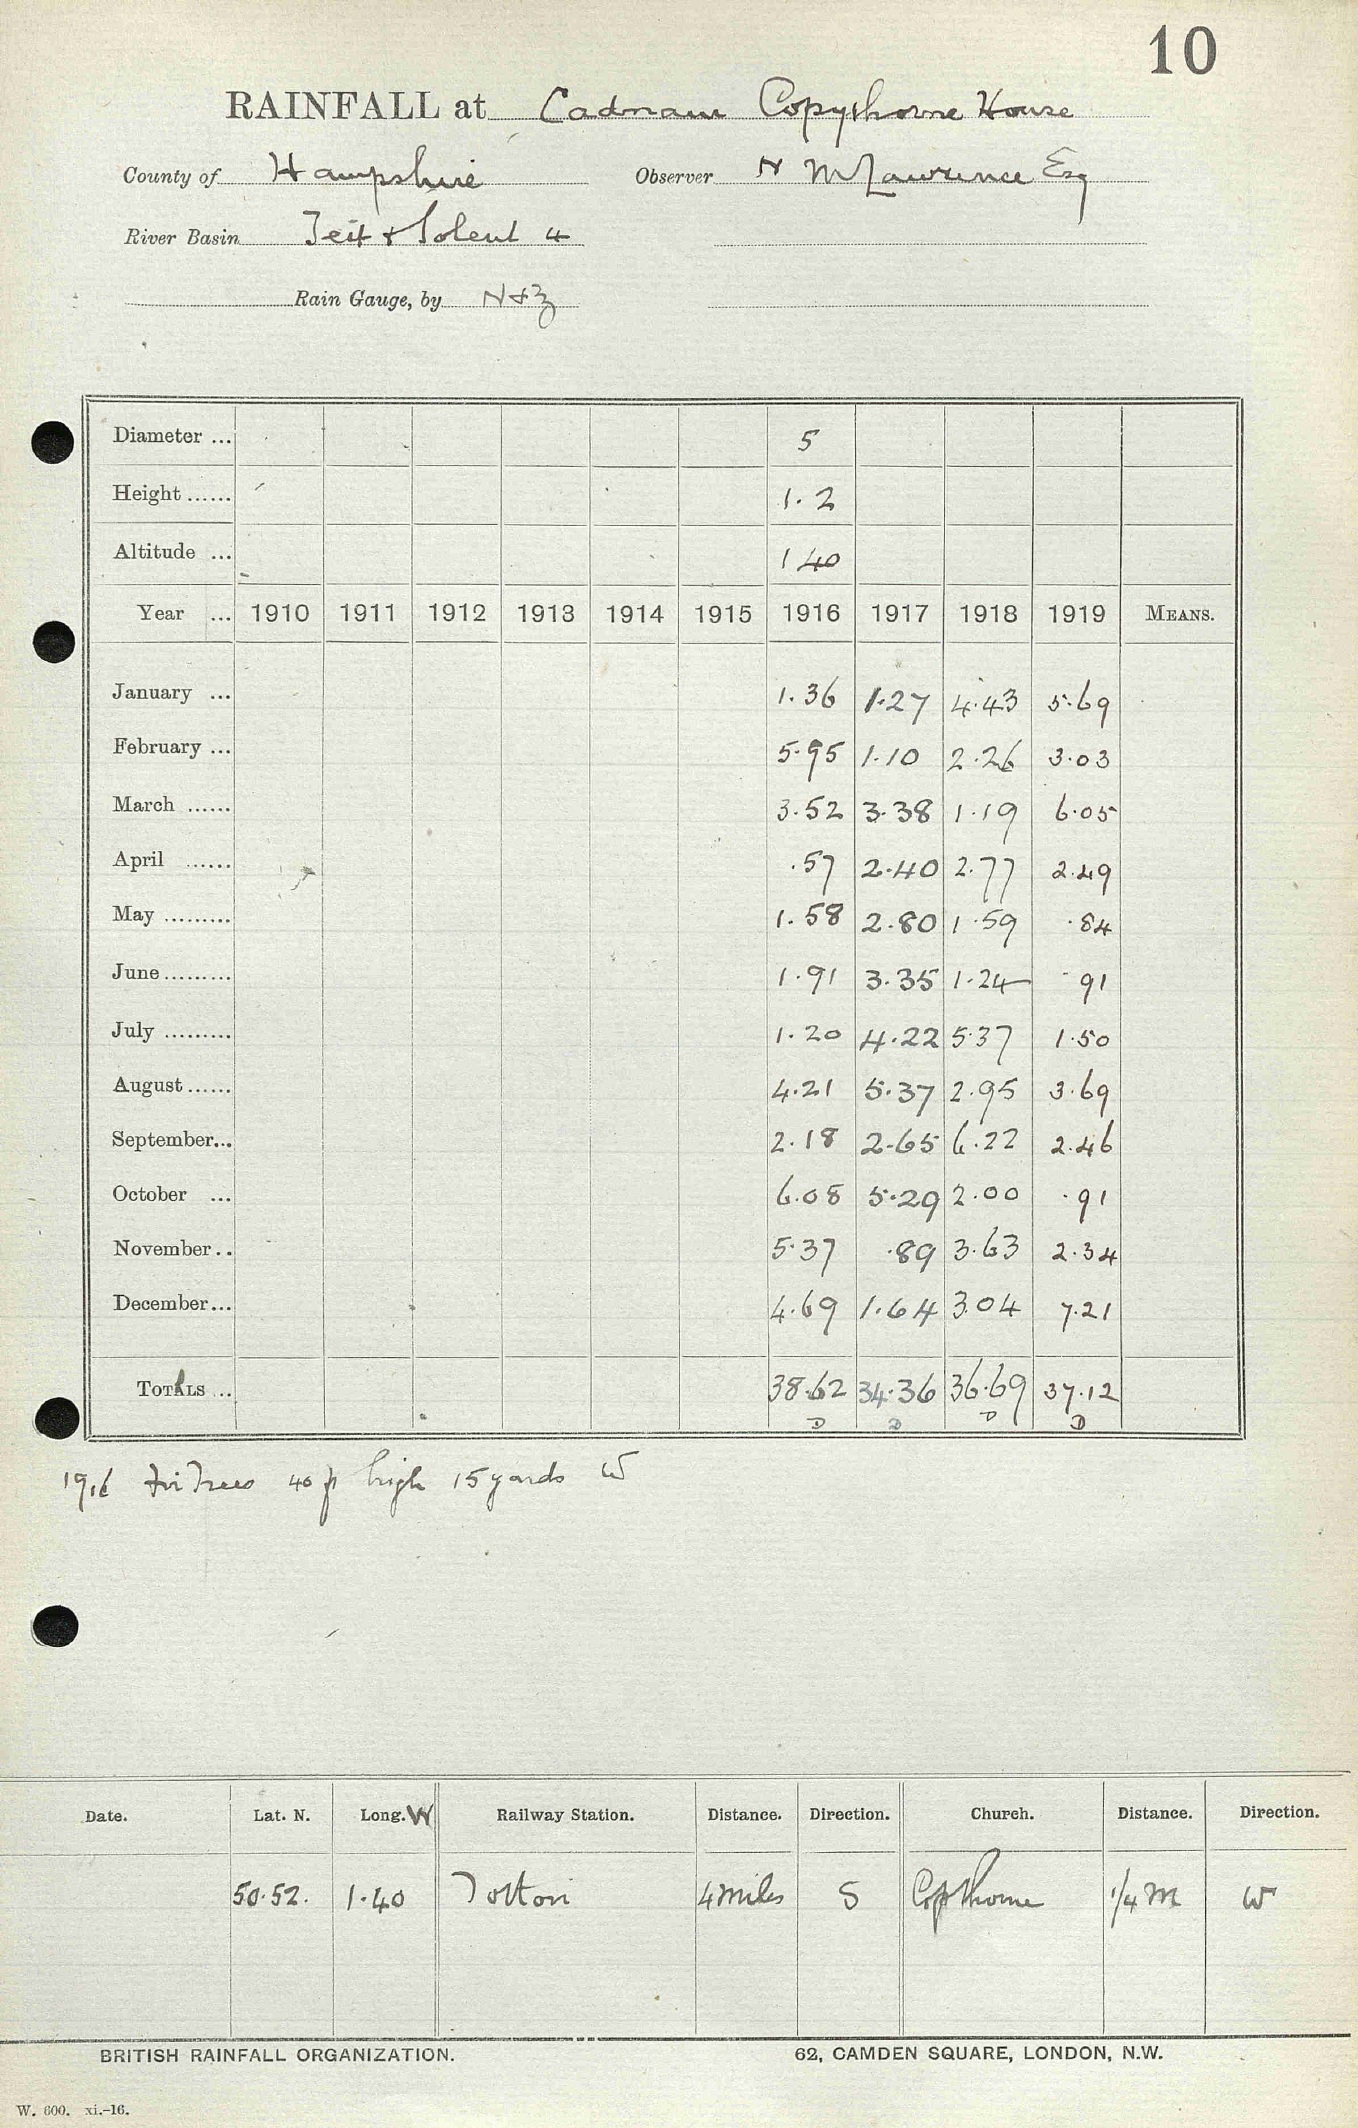 10
RAINFALL at Cadnam Copythorne House
County of Hampshire Observer H M Lawrence Esq
River Basin Test & Solent 4
Rain Gauge, by N&Z
Diameter ... 5
Height ...... 1.2
Altitude ... 140
Year ... 1910 1911 1912 1913 1914 1915 1916 1917 1918 1919 MEANS.
January ... 1.36 1.27 4.43 5.69
February ... 5.95 1.10 2.26 3.03
March ...... 3.52 3.38 1.19 6.05
April ...... .57 2.40 2.77 2.49
May ......... 1.58 2.80 1.59 .84
June ......... 1.91 3.35 1.24 .91
July ......... 1.20 4.22 5.37 1.50
August ...... 4.21 5.37 2.95 3.69
September... 2.18 2.65 6.22 2.46
October ... 6.08 5.29 2.00 .91
November .. 5.37 .89 3.63 2.34
December... 4.69 1.64 3.04 7.21
TOTALS ... 38.62 34.36 36.69 37.12
D D D D
1916 Fir Trees 40 ft high 15 yards W
Date. Lat. N. Long. W Railway Station. Distance. Direction. Church. Distance. Direction.
50.52. 1.40 Totton 4 miles S Copthorne 1/4 m W
BRITISH RAINFALL ORGANIZATION. 62, CAMDEN SQUARE, LONDON, N.W.
W. 600. xi.-16.